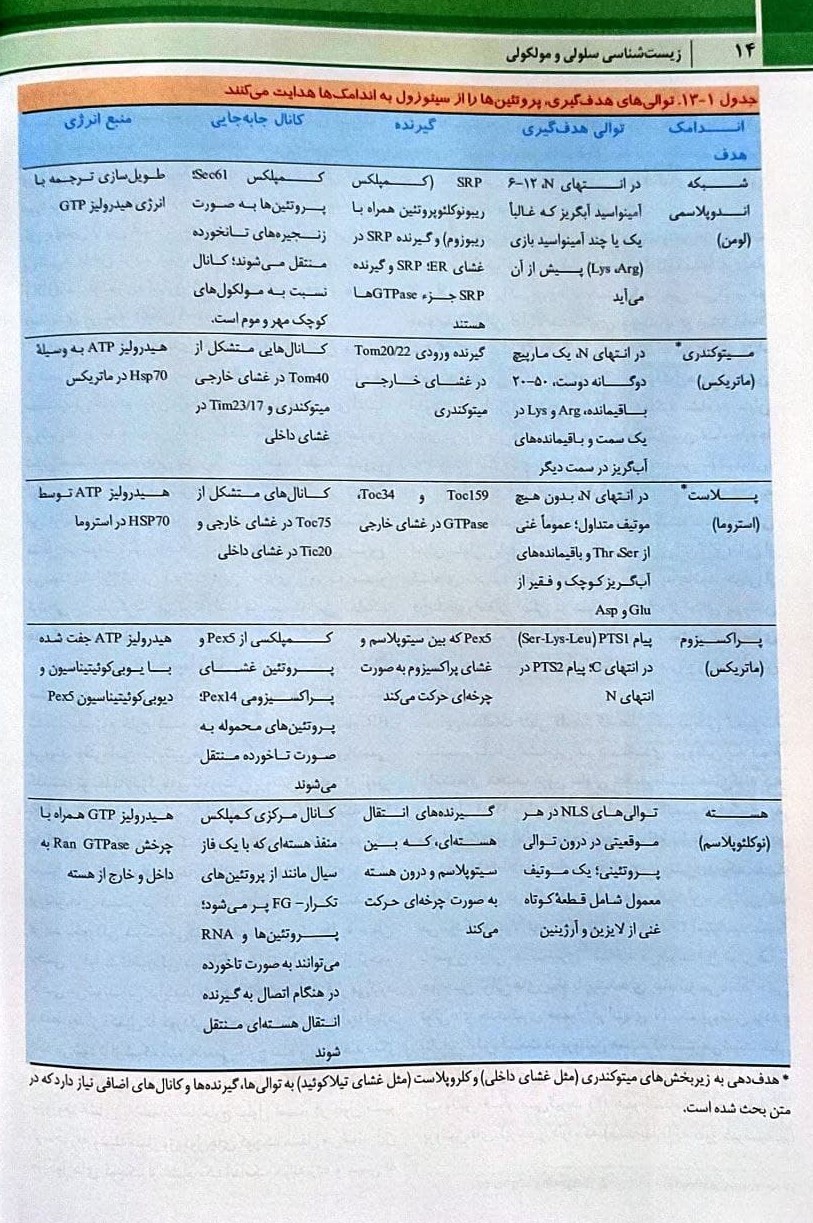 ۱۴ | زیست‌شناسی سلولی و مولکولی
جدول ۱-۱۳. توالی‌های هدف‌گیری، پروتئین‌ها را از سیتوزول به اندامک‌ها هدایت می‌کنند
انـــدامک هدف
توالی هدف‌گیری
گیرنده
کانال جابه‌جایی
منبع انرژی
شـــبکه
انـدوپلاسمی
(لومن)
در انـــتهای N، ۱۲–۶
آمینواسید آبگریز که غالباً
یک یا چند آمینواسید بازی
(Lys ،Arg) پـــیش از آن
می‌آید
SRP (کـــمپلکس
ریبونوکلئوپروتئین همراه با
ریبوزوم) و گیرنده SRP در
غشای ER؛ SRP و گیرنده
SRP جـزء GTPaseهـا
هستند
کـــمپلکس Sec61؛
پـروتئین‌ها به صورت
زنـجیره‌های تـانخورده
مـنتقل می‌شوند؛ کـانال
نسبت به مولکول‌های
کوچک مهر و موم است.
طـویل‌سازی تـرجمه با
انرژی هیدرولیز GTP
مـــیتوکندری*
(ماتریکس)
در انتهای N، یک مارپیچ
دوگـانه دوست، ۵۰–۲۰
بـاقیمانده، Arg و Lys در
یک سمت و باقیمانده‌های
آب‌گریز در سمت دیگر
گیرنده ورودی Tom20/22
در غشـــای خـــارجـــی
میتوکندری
کـانال‌هایی متشکل از
Tom40 در غشای خارجی
میتوکندری و Tim23/17 در
غشای داخلی
هـیدرولیز ATP بـه وسیلهٔ
Hsp70 در ماتریکس
پـــلاست*
(استروما)
در انتهای N، بدون هیچ
موتیف متداول؛ عموماً غنی
از Thr ،Ser و باقیمانده‌های
آب‌گـریز کـوچک و فقیر از
Glu و Asp
Toc159 و Toc34،
GTPase در غشای خارجی
کـانال‌های مـتشکل از
Toc75 در غشای خارجی و
Tic20 در غشای داخلی
هـــیدرولیز ATP تـوسط
HSP70 در استروما
پـراکسـیزوم
(ماتریکس)
پیام PTS1 (Ser-Lys-Leu)
در انتهای C؛ پیام PTS2 در
انتهای N
Pex5 که بین سیتوپلاسم و
غشای پراکسیزوم به صورت
چرخه‌ای حرکت می‌کند
کـــمپلکسی از Pex5 و
پـــروتئین غشـــای
پـراکسـیزومی Pex14؛
پـروتئین‌های مـحموله به
صـورت تـاخورده مـنتقل
می‌شوند
هیدرولیز ATP جفت شده
بـا یـوبی‌کوئیتیناسیون و
دیوبی‌کوئیتیناسیون Pex5
هســـته
(نوکلئوپلاسم)
تـوالی‌هـای NLS در هـر
مـوقعیتی در درون توالی
پـــروتئینی؛ یک مـوتیف
معمول شامل قطعهٔ کوتاه
غنی از لایزین و آرژینین
گـــیرنده‌های انـــتقال
هسته‌ای، کـه بـــین
سیتوپلاسم و درون هسته
به صورت چرخه‌ای حرکت
می‌کند
کانال مرکزی کمپلکس
منفذ هسته‌ای که با یک فاز
سیال مانند از پروتئین‌های
تکرار- FG پـر می‌شود؛
پـــروتئین‌ها و RNA
می‌توانند به صورت تاخورده
در هنگام اتصال به گیرنده
انتقال هسته‌ای مـنتقل
شوند
هیدرولیز GTP همراه با
چرخش Ran GTPase به
داخل و خارج از هسته
* هدف‌دهی به زیربخش‌های میتوکندری (مثل غشای داخلی) و کلروپلاست (مثل غشای تیلاکوئید) به توالی‌ها، گیرنده‌ها و کانال‌های اضافی نیاز دارد که در
متن بحث شده است.